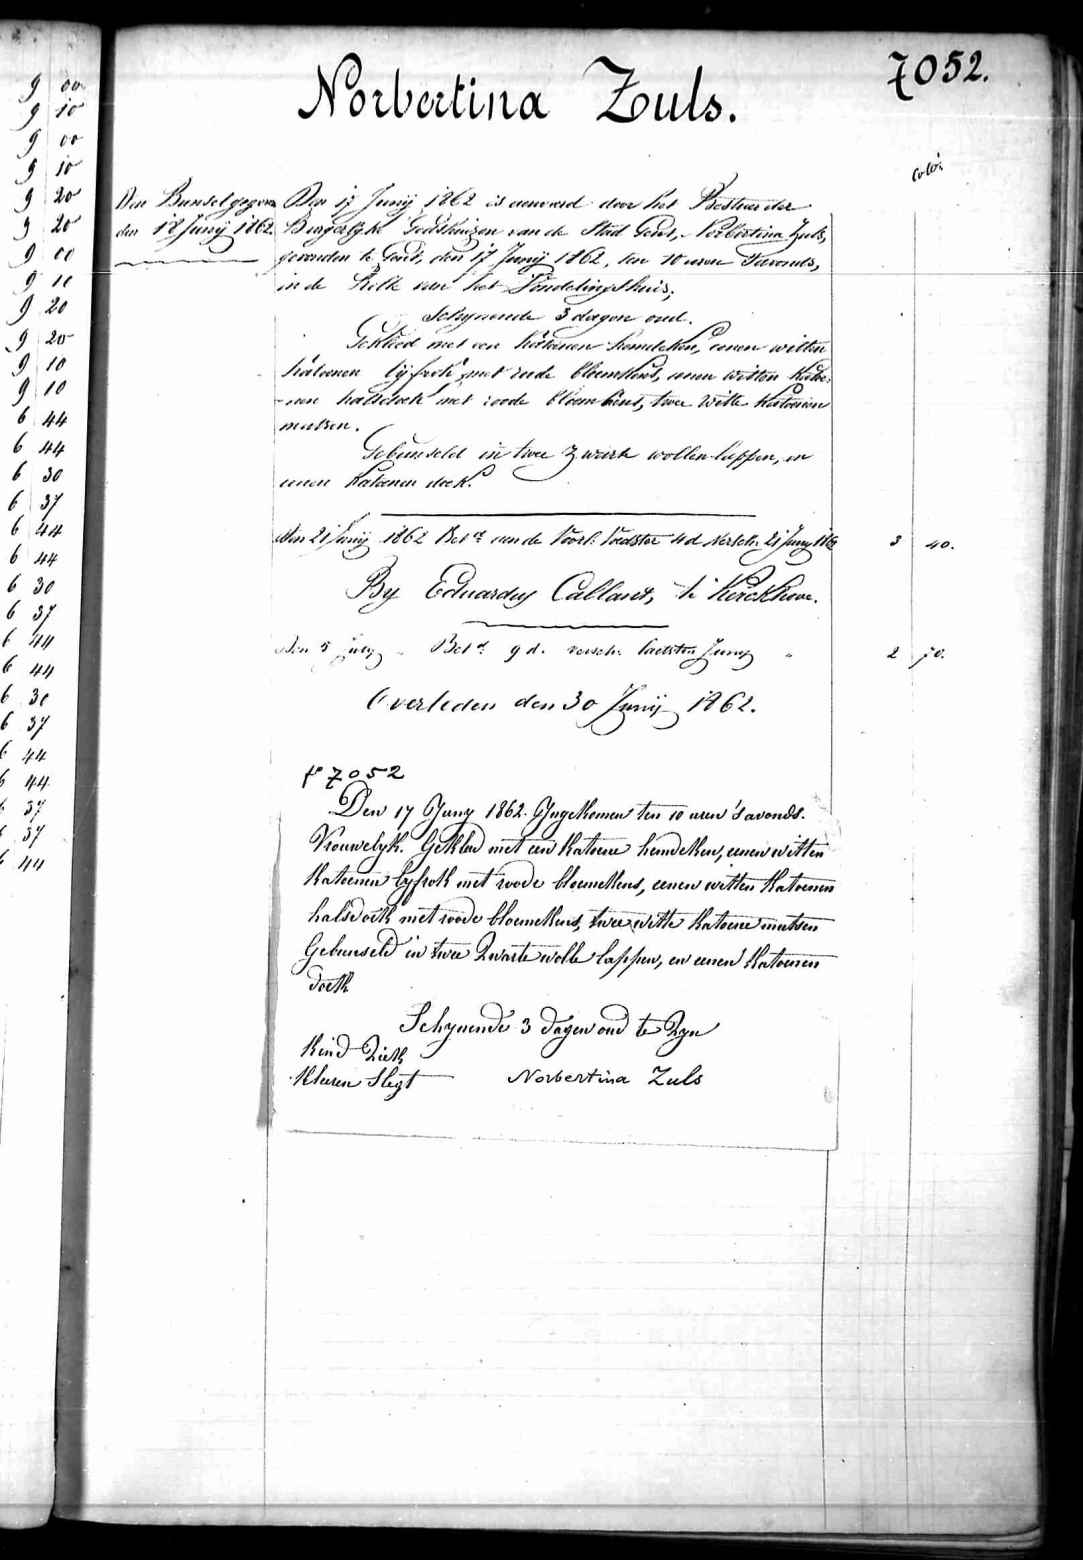 9 00
9 10
9 00
9 10
9 20
9 20
9 00
9 10
9 20
9 20
9 10
9 10
6 44
6 44
6 30
6 37
6 44
6 44
6 30
6 37
6 44
6 44
6 30
6 37
6 44
6 44
6 37
6 37
6 44
7052.
Norbertina Zuls.
Den Bunsel gegeven
den 18 Junij 1862.
Den 17 Junij 1862 is aenveerd door het Bestuer der
Burgerlyke Godshuizen van de Stad Gent, Norbertina Zuls,
gevonden te Gent, den 17 Junij 1862, ten 10 uren 's avonds,
in de Rolle van het Vondelingshuis,
Schynende 3 dagen oud.
Gekleed met een katoenen hemdeken, eenen witten
katoenen lyfrok met roode bloemkens, eenen witten katoe-
-nen halsdoek met roode bloemkens, twee witte katoenen
mutsen.
Gebunseld in twee zwarte wollen lappen, en
eenen katoenen doek.
Den 21 Junij 1862 Bet.d aen de Voorl: Voedster 4 d. versch: 21 Juny 1862 3 40.
By Eduardus Callant, te Kerckhove.
Den 5 July „ Bet.d 9 d. versch: laetsten Juny „ 2 70.
Overleden den 30 Junij 1862.
N° 7052
Den 17 Juny 1862. Ingekomen ten 10 uren 's avonds.
Vrouwelyk. Gekleed met een katoene hemdeken, eenen witten
katoenen lyfrok met roode bloemekens, eenen witten katoenen
halsdoek met roode bloemekens, twee witte katoene mutsen
Gebunseld in twee zwarte wolle lappen, en eenen katoenen
doek
Schynende 3 dagen oud te zyn
Kind Ziek
Kleeren Slegt Norbertina Zuls